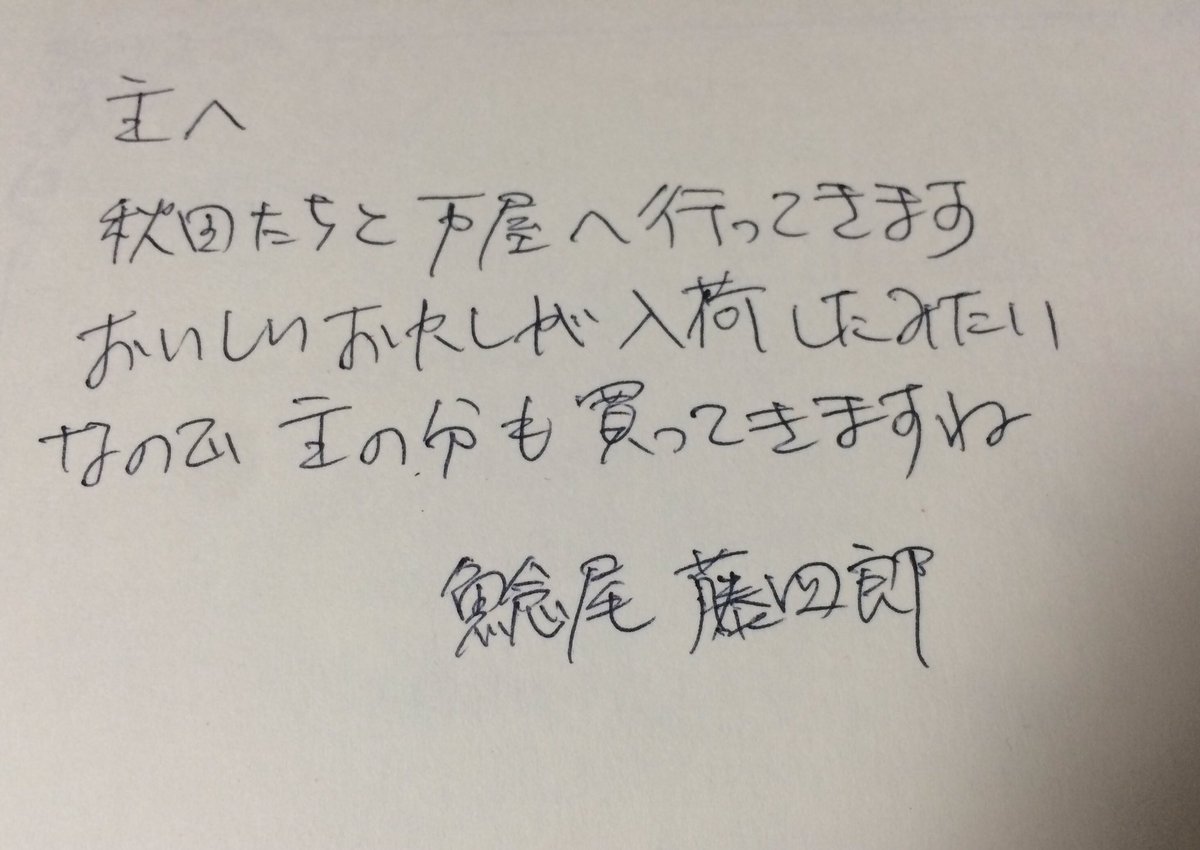 主へ
秋田たちと万屋へ行ってきます
おいしいお火しが入荷したみたい
なので 主の分も買ってきますね
鯰尾 藤四郎